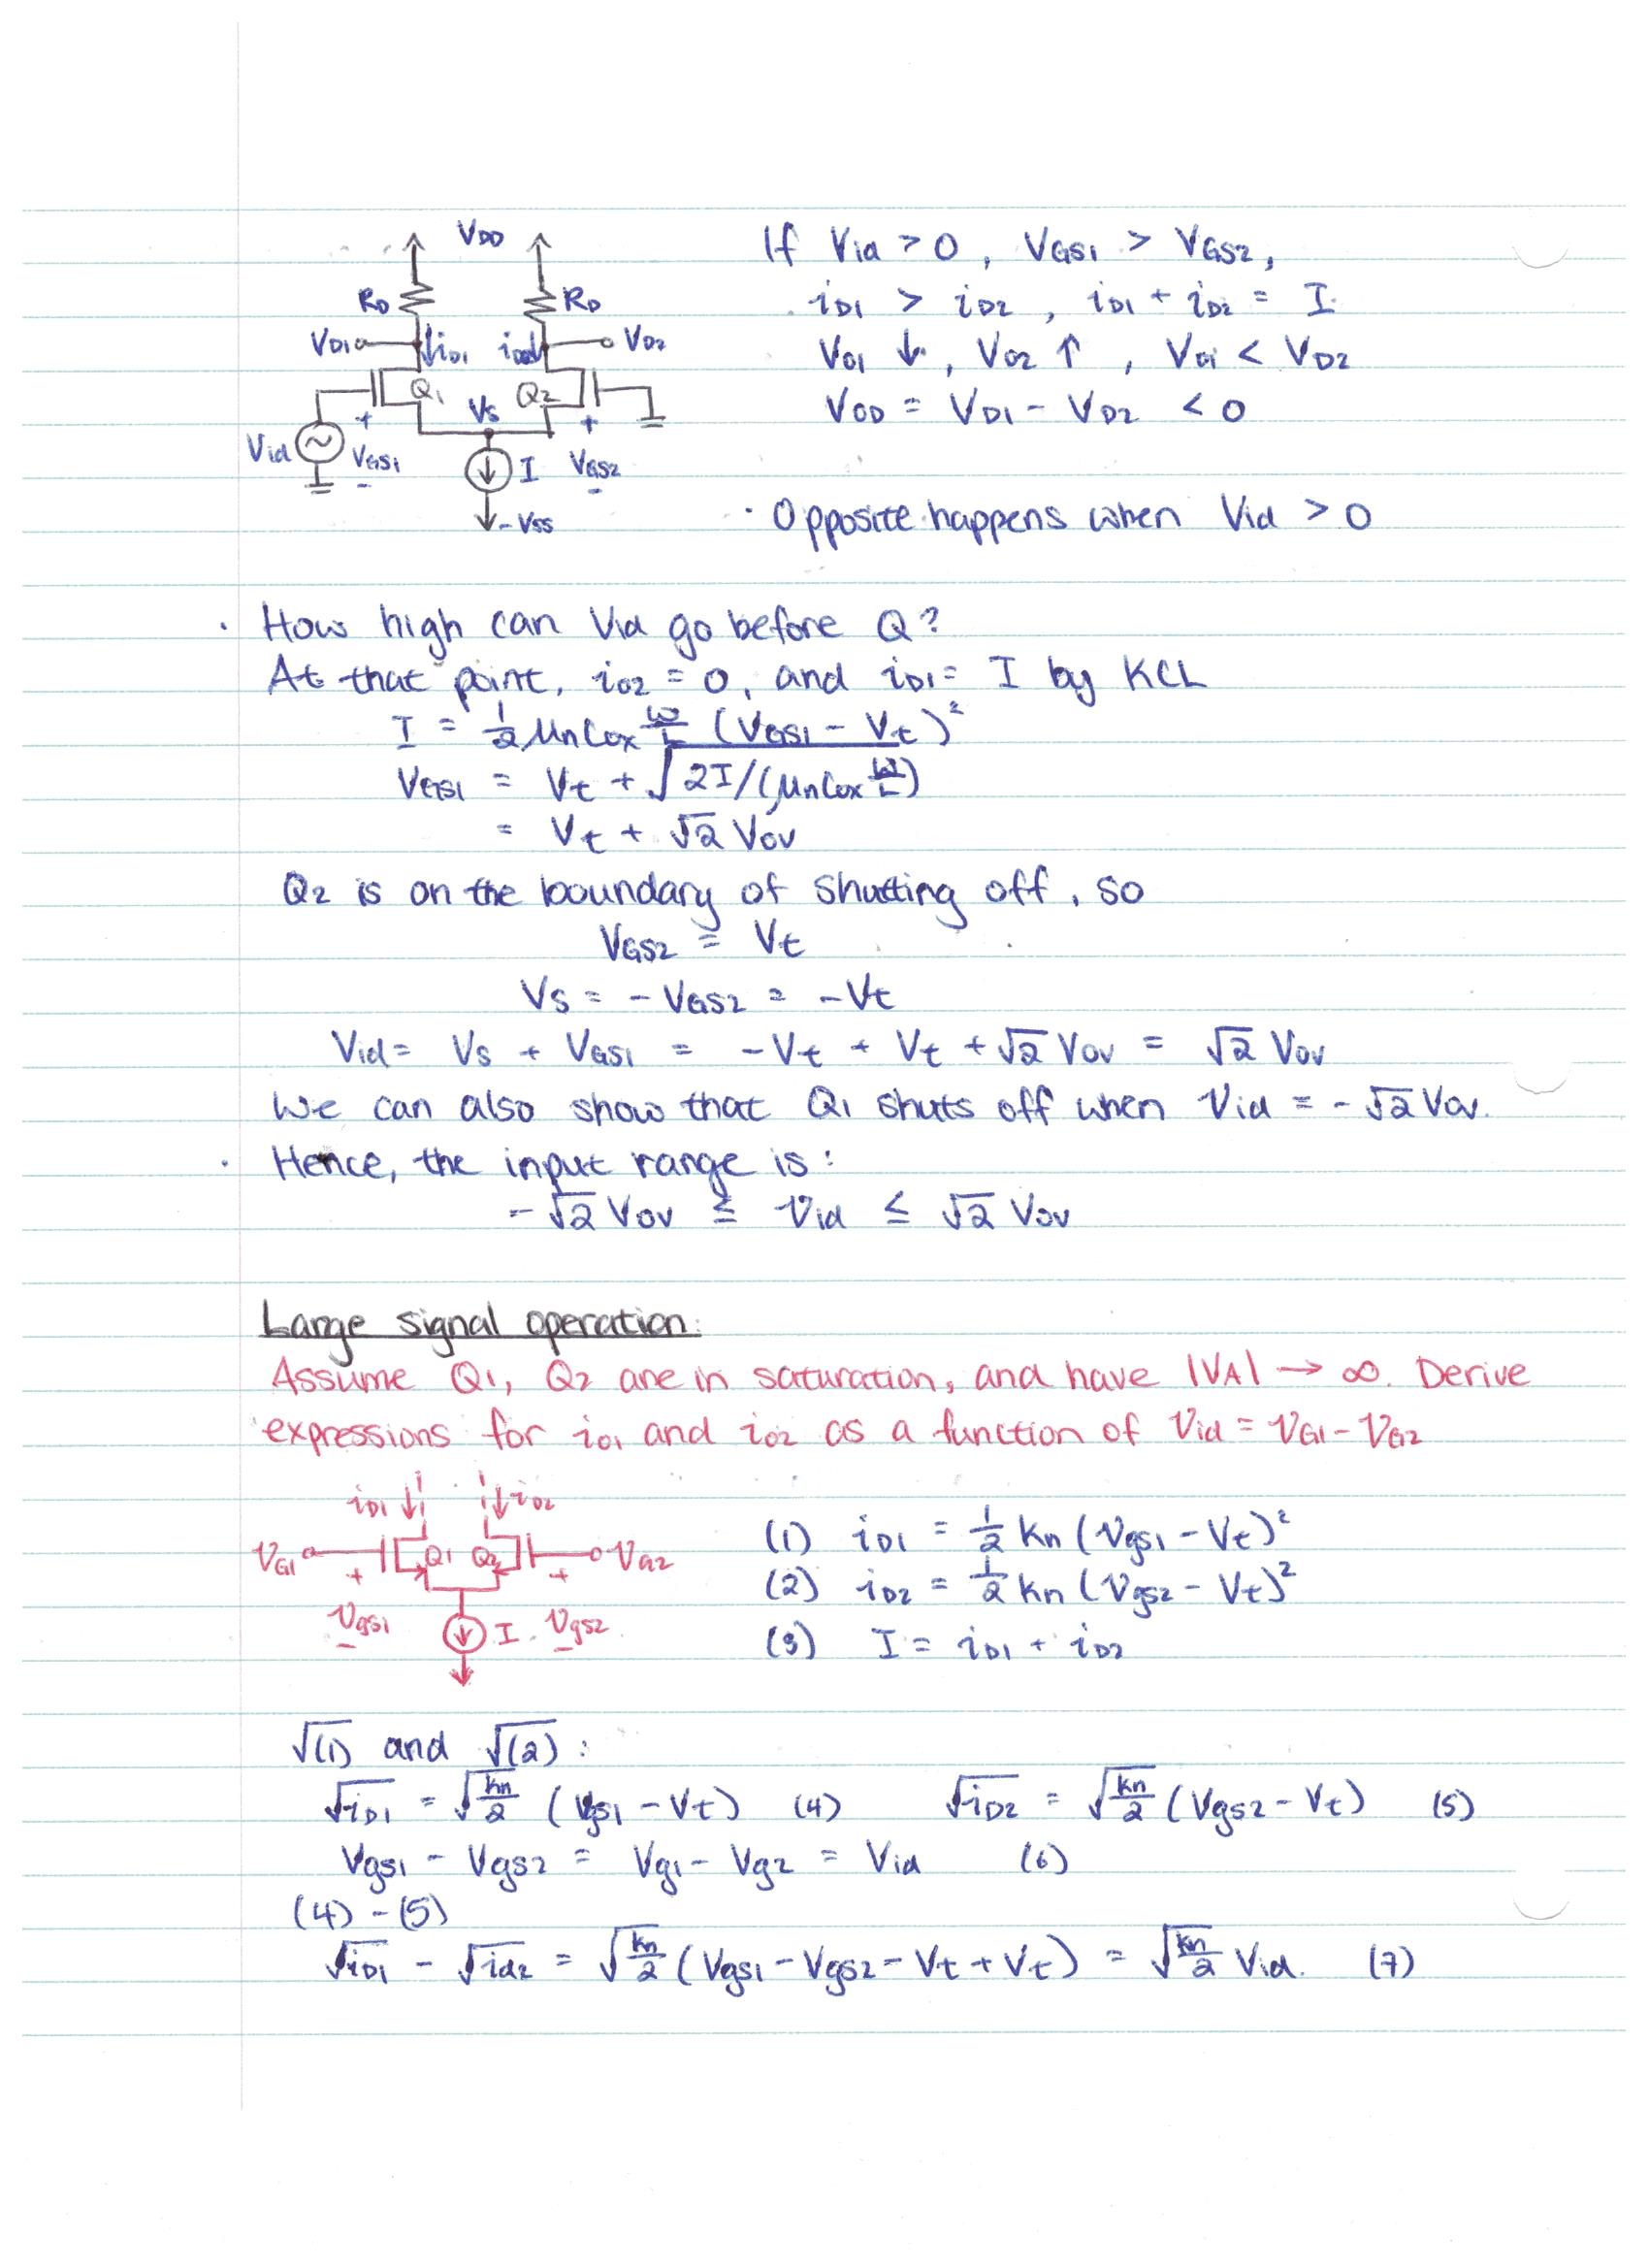 V_DD
If Vid > 0, V_GS1 > V_GS2,
R_D R_D
i_D1 > i_D2, i_D1 + i_D2 = I.
V_D1 ↓i_D1 V_D2
V_D1 ↓, V_D2 ↑, V_D1 < V_D2
Q1 Vs Q2
V_OD = V_D1 - V_D2 < 0
+ +
Vid V_GS1 I V_GS2
- -
-Vss
· Opposite happens when Vid > 0
· How high can Vid go before Q?
At that point, i_D2 = 0, and i_D1 = I by KCL
I = 1/2 μnCox W/L (V_GS1 - Vt)²
V_GS1 = Vt + √(2I/(μnCox W/L))
= Vt + √2 Vov
Q2 is on the boundary of shutting off, so
V_GS2 = Vt
Vs = -V_GS2 = -Vt
Vid = Vs + V_GS1 = -Vt + Vt + √2 Vov = √2 Vov
We can also show that Q1 shuts off when Vid = -√2 Vov.
· Hence, the input range is:
-√2 Vov ≤ Vid ≤ √2 Vov
Large signal operation:
Assume Q1, Q2 are in saturation, and have |VA| → ∞. Derive
expressions for i_D1 and i_D2 as a function of Vid = V_G1 - V_G2
i_D1 ↓ ↓ i_D2
(1) i_D1 = 1/2 kn (Vgs1 - Vt)²
V_G1 Q1 Q2 V_G2
+ +
(2) i_D2 = 1/2 kn (Vgs2 - Vt)²
Vgs1 I Vgs2
- -
(3) I = i_D1 + i_D2
√(1) and √(2):
√i_D1 = √(kn/2) (Vgs1 - Vt) (4) √i_D2 = √(kn/2) (Vgs2 - Vt) (5)
Vgs1 - Vgs2 = Vg1 - Vg2 = Vid (6)
(4) - (5)
√i_D1 - √id2 = √(kn/2) (Vgs1 - Vgs2 - Vt + Vt) = √(kn/2) Vid. (7)